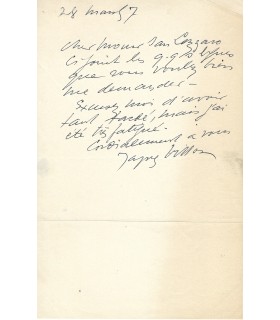 28 mars 57
Cher Monsieur San Lazzaro
Ci joint les q.q. lignes
que vous voulez bien
me demander -
Excusez moi d'avoir
tant tardé, mais j'ai
été très fatigué.
Cordialement à vous
Jacques Villon